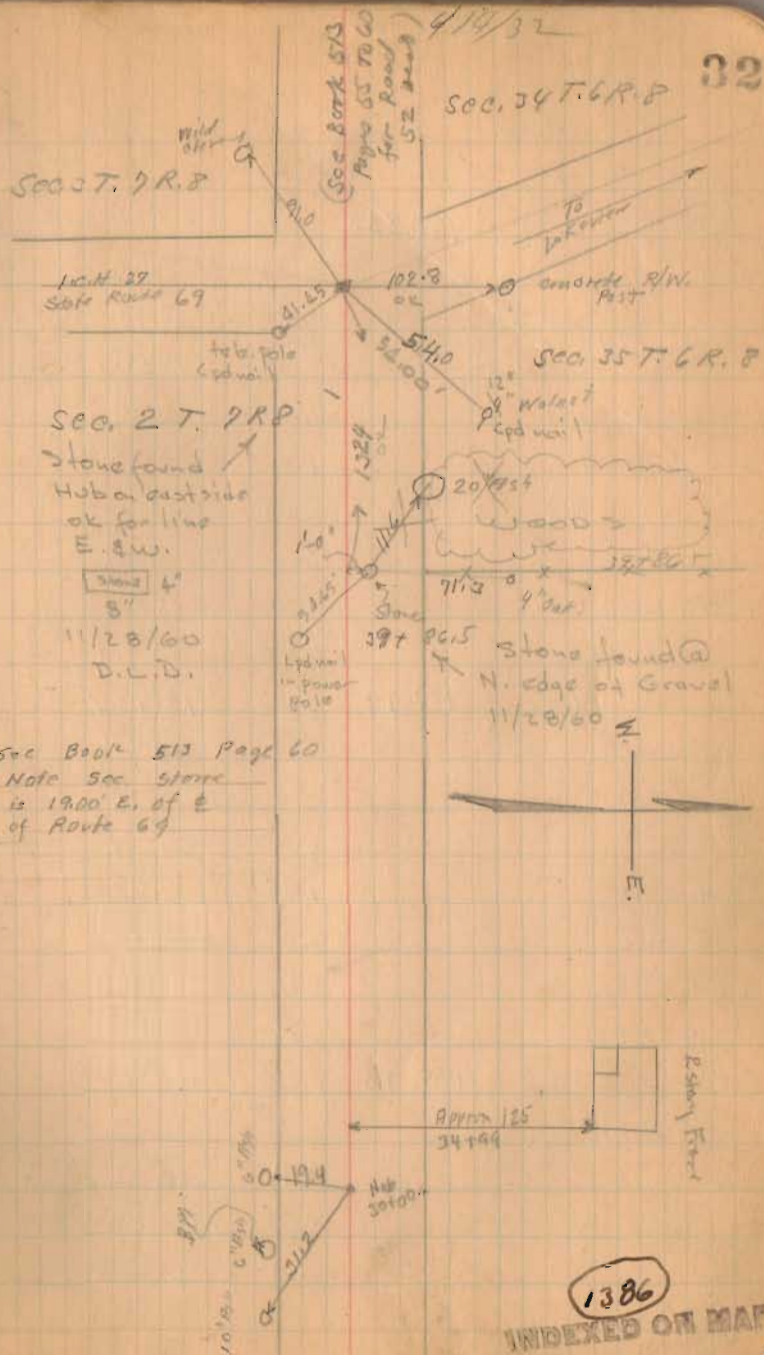 4/14/32
32
(See Book 513
Pages 55 To 60
for Road
52 West)
Sec. 34 T. 6 R. 8
wild
Sec 3 T. 7 R. 8
91.0
To
Lakeview
I.C.H 27
State Route 69
102.8
ok
concrete R/W.
Post
41.45
tele. pole
Spd nail
514.0
Sec. 35 T. 6 R. 8
12"
Walnut
Spd nail
Sec. 2 T. 7 R 8
Stone found
Hub on east side
ok for line
E. & W.
Stone 4"
8"
11/28/60
D.L.D.
1324
ok
20" Ash
WOODS
1'-0"
11.6
39+86.5
71.3
Stone
39+86.5
Spd nail
in power
Pole
Stone found @
N. edge of Gravel
11/28/60
W.
E.
See Book 513 Page 60
Note Sec. Stone
is 19.00' E. of ℄
of Route 69
Approx 125
34+99
2 story Frame
19.4
Hub
30+00
31.2
1386
INDEXED ON MAP